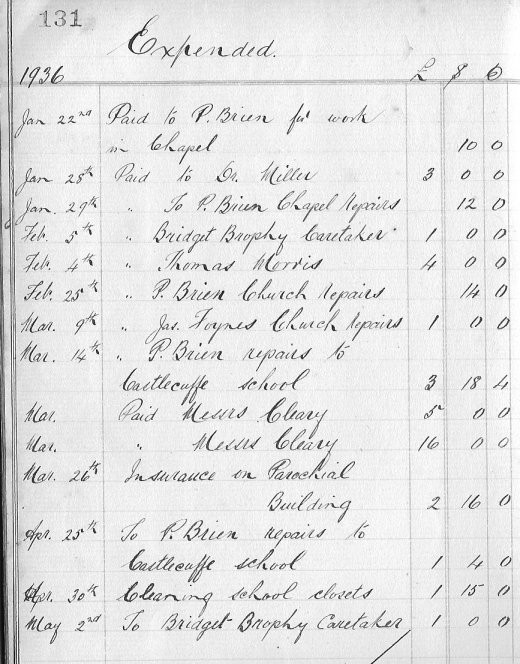 131
Expended.
1936 £ s D
Jan 22nd Paid to P. Brien for work
in Chapel 10 0
Jan 28th Paid to Dr. Miller 3 0 0
Jan. 29th " To P. Brien Chapel repairs 12 0
Feb. 5th " Bridget Brophy Caretaker 1 0 0
Feb. 4th " Thomas Morris 4 0 0
Feb. 25th " P. Brien Church repairs 14 0
Mar. 9th " Jas. Foynes Church repairs 1 0 0
Mar. 14th " P. Brien repairs to
Castlecuffe school 3 18 4
Mar. Paid Messrs Cleary 5 0 0
Mar. " Messrs Cleary 16 0 0
Mar. 26th Insurance on Parochial
Building 2 16 0
Apr. 25th To P. Brien repairs to
Castlecuffe school 1 4 0
Apr. 30th Cleaning school closets 1 15 0
May 2nd To Bridget Brophy Caretaker 1 0 0